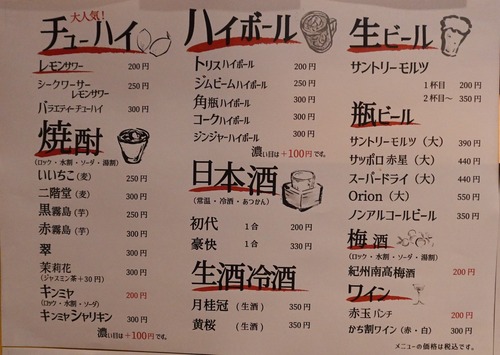 大人気!
チューハイ
レモンサワー 200円
シークワーサーレモンサワー 250円
バラエティーチューハイ 300円
焼酎
(ロック・水割・ソーダ・湯割)
いいちこ(麦) 250円
二階堂(麦) 300円
黒霧島(芋) 250円
赤霧島(芋) 300円
翠 300円
茉莉花 300円
(ジャスミン茶+30円)
キンミヤ 200円
(ロック・水割・ソーダ)
キンミヤシャリキン 300円
濃い目は+100円です。
ハイボール
トリスハイボール 200円
ジムビームハイボール 250円
角瓶ハイボール 300円
コークハイボール 300円
ジンジャーハイボール 300円
濃い目は+100円です。
日本酒
(常温・冷酒・あつかん)
初代 1合 200円
豪快 1合 330円
生酒冷酒
月桂冠(生酒) 350円
黄桜(生酒) 350円
生ビール
サントリーモルツ
1杯目 200円
2杯目~ 350円
瓶ビール
サントリーモルツ(大) 390円
サッポロ赤星(大) 440円
スーパードライ(大) 440円
Orion(大) 550円
ノンアルコールビール 350円
梅酒
(ロック・水割・ソーダ・湯割)
紀州南高梅酒 200円
ワイン
赤玉パンチ 200円
かち割ワイン(赤・白) 300円
メニューの価格は税込です。